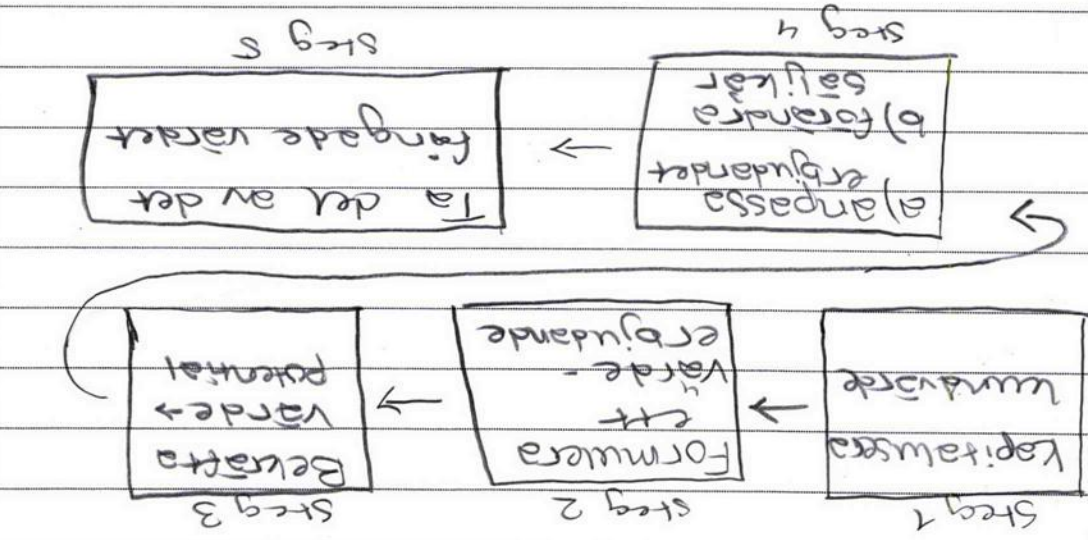 Steg 1
Kapitalisera
kundvärde
steg 2
Formulera
ett
värde-
erbjudande
steg 3
Bekräfta
värde→
potential
a) anpassa
erbjudandet
b) förändra
säljkår
steg 4
Ta del av det
fångade värdet
steg 5